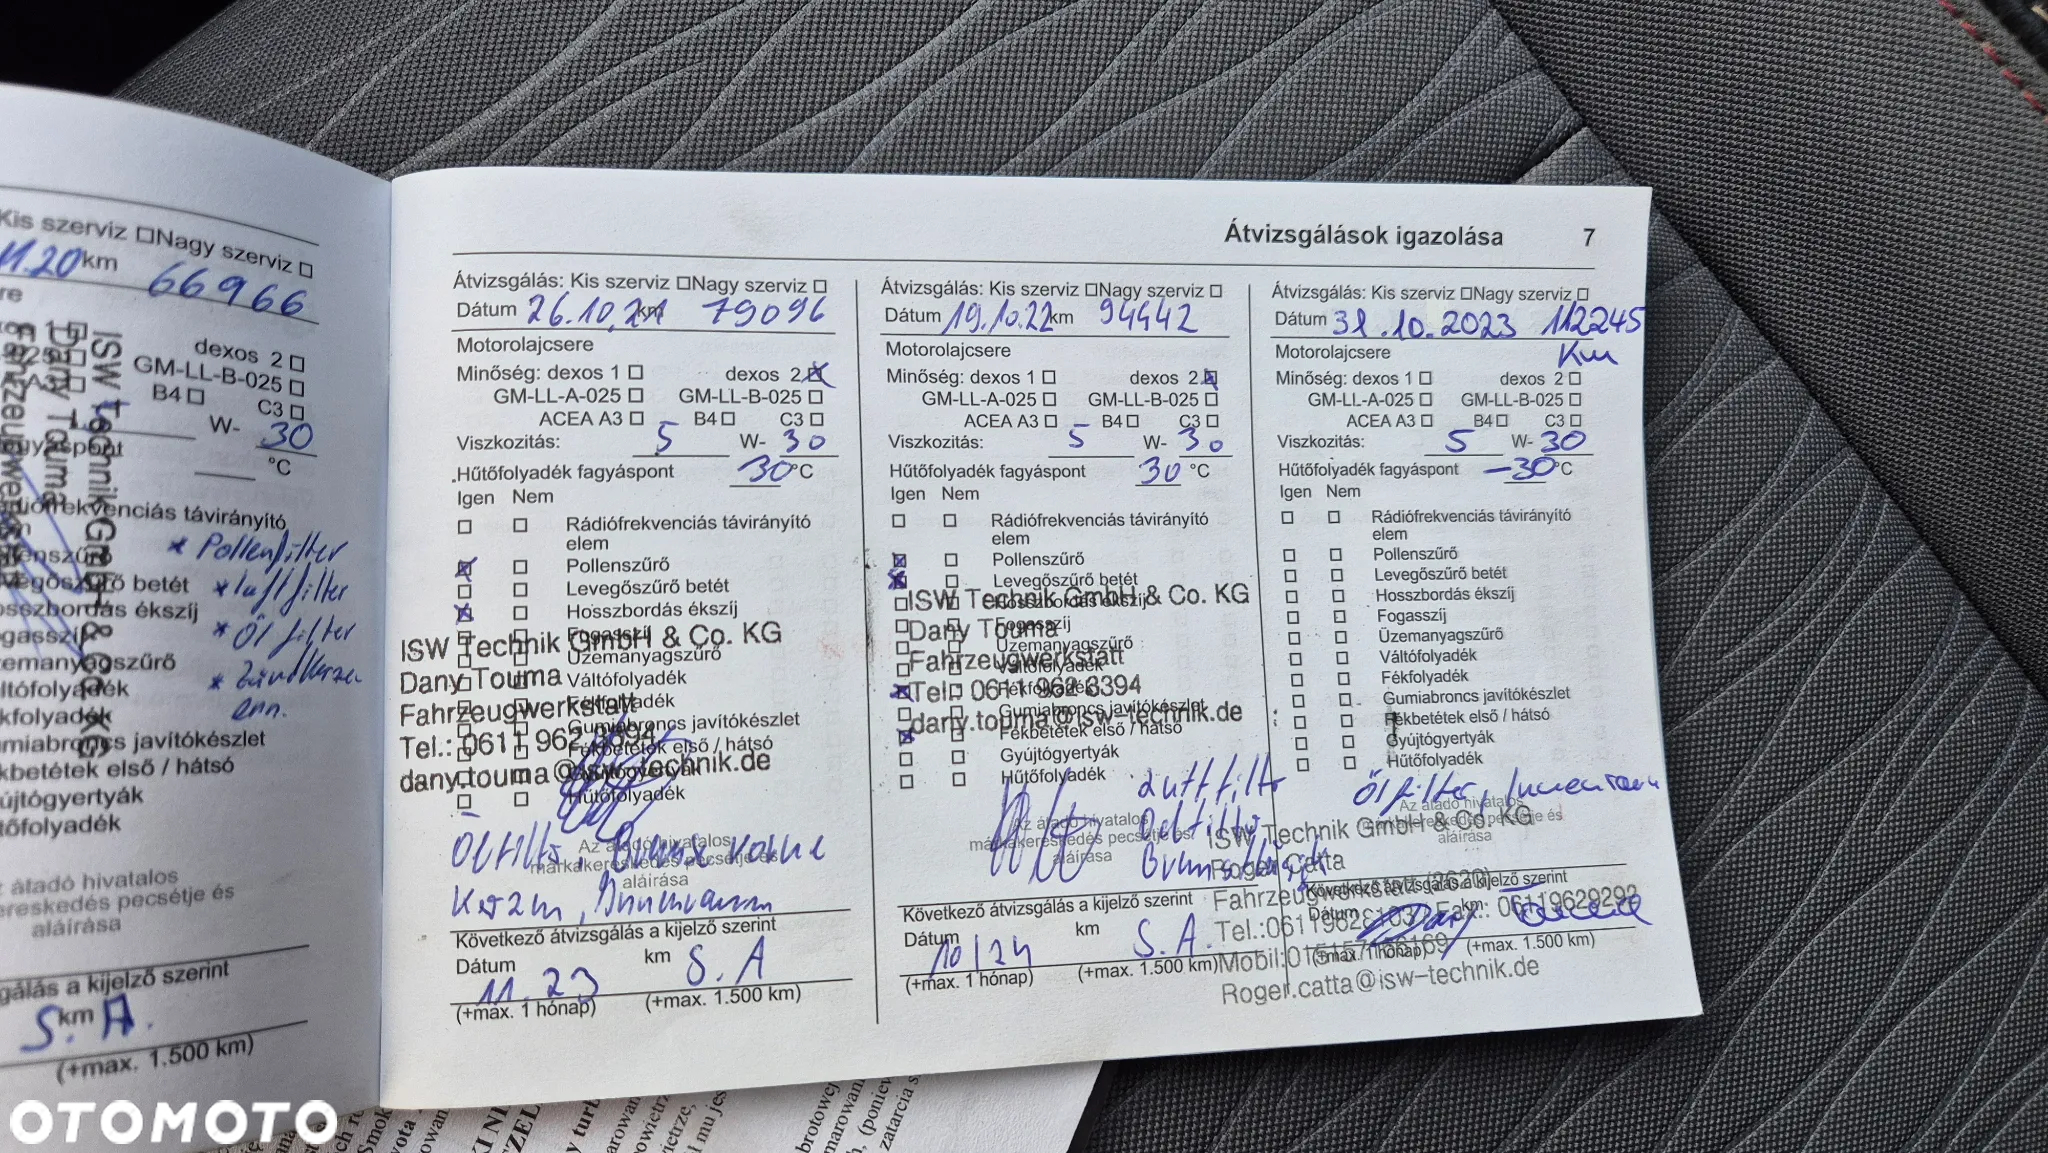 Kis szerviz □Nagy szerviz □
11.20 km 66966
dexos 2 □
GM-LL-B-025 □
B4 □ C3 □
W- 30
°C
távirányító
* Pollenfilter
betét * Luftfilter
ékszíj * Öl filter
* Zündkerzen
ern.
javítókészlet
első / hátsó
átadó hivatalos
pecsétje és
aláírása
a kijelző szerint
km S.A.
(+max. 1.500 km)
ISW Technik GmbH & Co. KG
Dany Touma
Átvizsgálások igazolása 7
Átvizsgálás: Kis szerviz □Nagy szerviz □
Dátum 26.10.21 km 79096
Motorolajcsere
Minőség: dexos 1 □ dexos 2 ☒
GM-LL-A-025 □ GM-LL-B-025 □
ACEA A3 □ B4 □ C3 □
Viszkozitás: 5 W- 30
Hűtőfolyadék fagyáspont 30 °C
Igen Nem
□ □ Rádiófrekvenciás távirányító
elem
☒ □ Pollenszűrő
□ □ Levegőszűrő betét
☒ □ Hosszbordás ékszíj
□ □ Fogasszíj
□ □ Üzemanyagszűrő
□ □ Váltófolyadék
□ □ Fékfolyadék
□ □ Gumiabroncs javítókészlet
□ □ Fékbetétek első / hátsó
□ □ Gyújtógyertyák
□ □ Hűtőfolyadék
ISW Technik GmbH & Co. KG
Dany Touma
Fahrzeugwerkstatt
Tel.: 0611 962 3394
dany.touma@isw-technik.de
Az átadó hivatalos
márkakereskedés pecsétje és
aláírása
Kerzen, Innenraum
Következő átvizsgálás a kijelző szerint
Dátum 11.23 km S.A
(+max. 1 hónap) (+max. 1.500 km)
Átvizsgálás: Kis szerviz □Nagy szerviz □
Dátum 19.10.22 km 94442
Motorolajcsere
Minőség: dexos 1 □ dexos 2 ☒
GM-LL-A-025 □ GM-LL-B-025 □
ACEA A3 □ B4 □ C3 □
Viszkozitás: 5 W- 30
Hűtőfolyadék fagyáspont 30 °C
Igen Nem
□ □ Rádiófrekvenciás távirányító
elem
☒ □ Pollenszűrő
☒ □ Levegőszűrő betét
□ □ Hosszbordás ékszíj
□ □ Fogasszíj
□ □ Üzemanyagszűrő
□ □ Váltófolyadék
☒ □ Fékfolyadék
□ □ Gumiabroncs javítókészlet
☒ □ Fékbetétek első / hátsó
□ □ Gyújtógyertyák
□ □ Hűtőfolyadék
ISW Technik GmbH & Co. KG
Dany Touma
Fahrzeugwerkstatt
Tel.: 0611 962 3394
dany.touma@isw-technik.de
Luftfilter
Az átadó hivatalos
márkakereskedés pecsétje és
aláírása
Következő átvizsgálás a kijelző szerint
Dátum 10/24 km S.A.
(+max. 1 hónap) (+max. 1.500 km)
Átvizsgálás: Kis szerviz □Nagy szerviz □
Dátum 31.10.2023 112245
Km
Motorolajcsere
Minőség: dexos 1 □ dexos 2 □
GM-LL-A-025 □ GM-LL-B-025 □
ACEA A3 □ B4 □ C3 □
Viszkozitás: 5 W- 30
Hűtőfolyadék fagyáspont -30 °C
Igen Nem
□ □ Rádiófrekvenciás távirányító
elem
□ □ Pollenszűrő
□ □ Levegőszűrő betét
□ □ Hosszbordás ékszíj
□ □ Fogasszíj
□ □ Üzemanyagszűrő
□ □ Váltófolyadék
□ □ Fékfolyadék
□ □ Gumiabroncs javítókészlet
□ □ Fékbetétek első / hátsó
□ □ Gyújtógyertyák
□ □ Hűtőfolyadék
Ölfilter, Innenraum
Az átadó hivatalos
márkakereskedés pecsétje és
aláírása
ISW Technik GmbH & Co. KG
Roger Catta
Fahrzeugwerkstatt (2620)
Fax.: 06119629292
Roger.catta@isw-technik.de
Következő átvizsgálás a kijelző szerint
Dátum km
(+max. 1 hónap) (+max. 1.500 km)
OTOMOTO